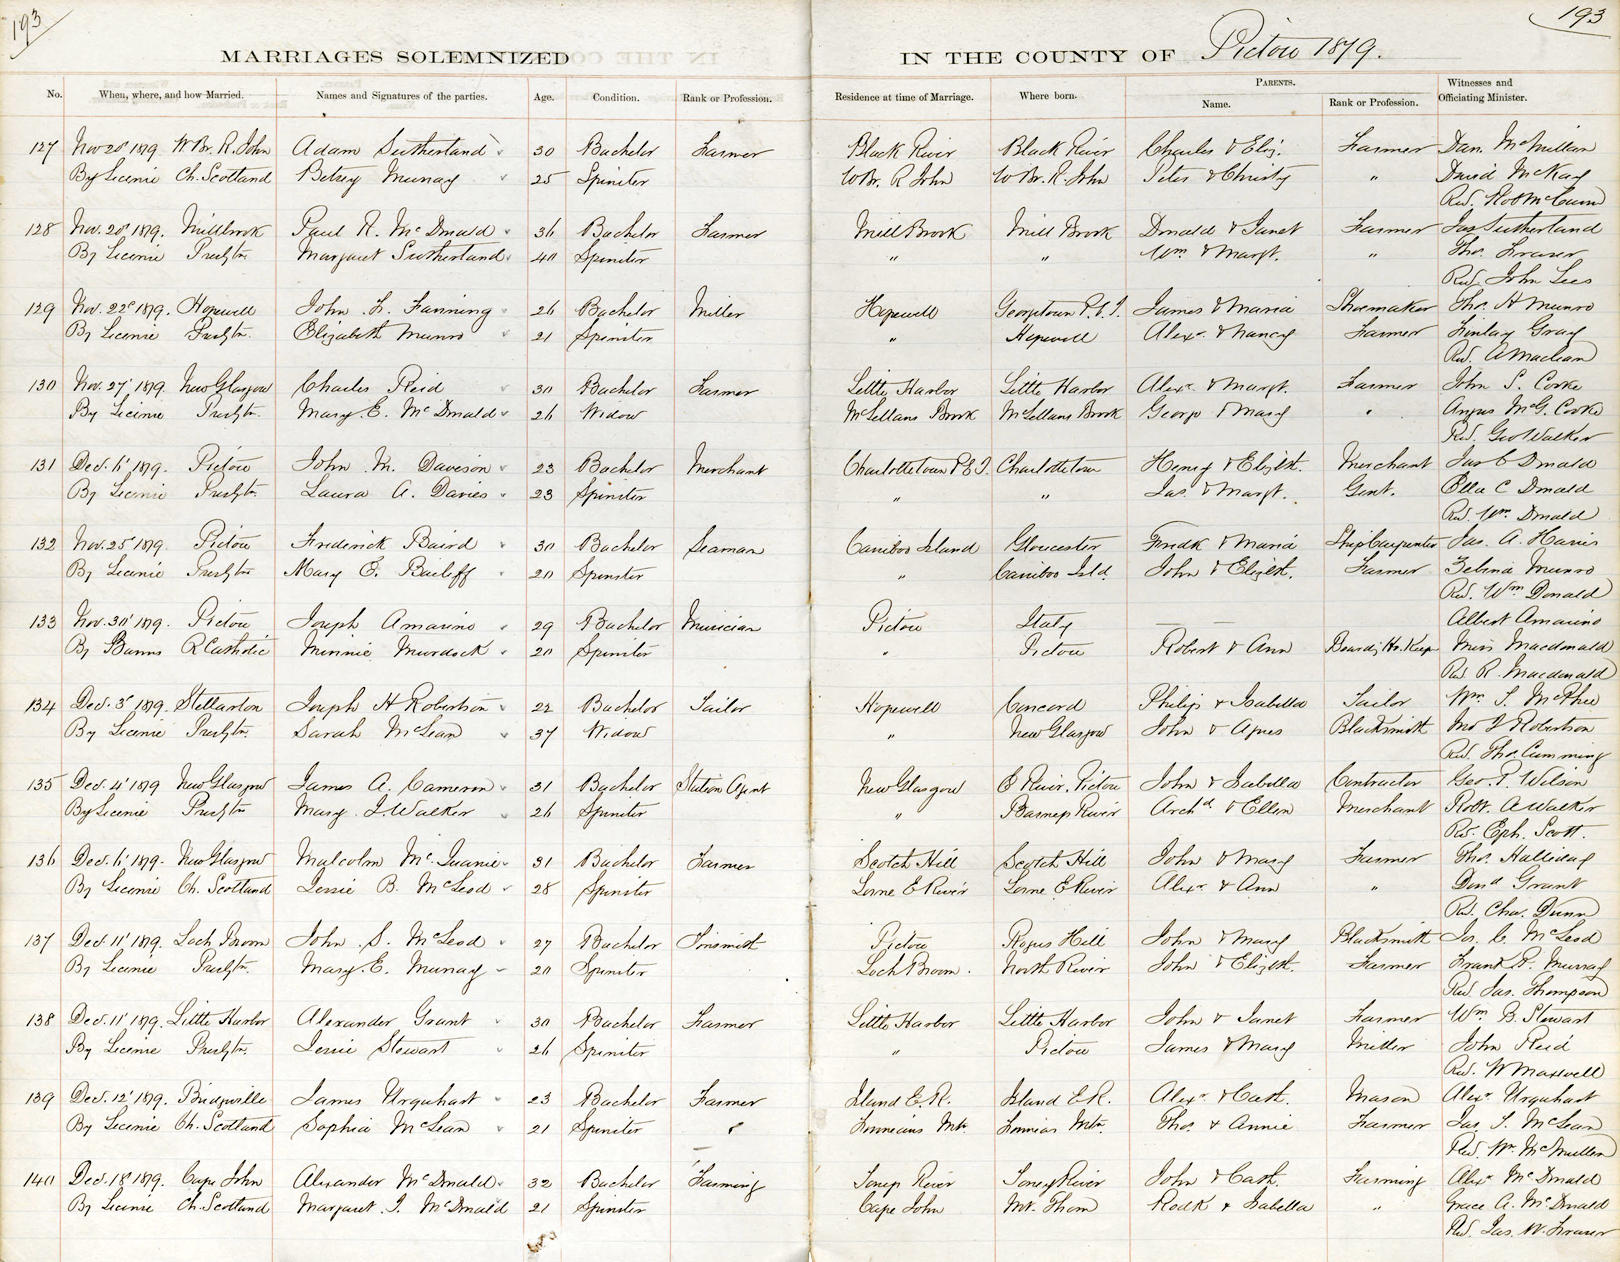 193
193
MARRIAGES SOLEMNIZED
IN THE COUNTY OF Pictou 1879.
No. When, where, and how Married. Names and Signatures of the parties. Age. Condition. Rank or Profession. Residence at time of Marriage. Where born. PARENTS. Name. Rank or Profession. Witnesses and Officiating Minister.
127 Nov 20 1879. W Br. R. John Adam Sutherland 30 Bachelor Farmer Black River Black River Charles & Eliz. Farmer Dan. McMillan
By Licence Ch. Scotland Betsey Murray 25 Spinster W Br. R John W Br. R. John Peter & Christy " David McKay
Rev. Robt McCunn
128 Nov. 20 1879. Millbrook Paul R. McDonald 36 Bachelor Farmer Mill Brook Mill Brook Donald & Janet Farmer Jas Sutherland
By Licence Presbtn. Margaret Sutherland 40 Spinster " " Wm & Margt. " Thos. Fraser
Rev. John Lees
129 Nov. 22 1879. Hopewell John F. Fanning 26 Bachelor Miller Hopewell Georgetown P.E.I. James & Maria Shoemaker Thos. H Munro
By Licence Presbtn. Elizabeth Munro 21 Spinster " Hopewell Alexr. & Nancy Farmer Finlay Gray
Rev. A Maclean
130 Nov. 27 1879. New Glasgow Charles Reid 30 Bachelor Farmer Little Harbor Little Harbor Alexr & Margt. Farmer John S. Cooke
By Licence Presbtn. Mary E. McDonald 26 Widow McLellans Brook McLellans Brook George & Mary " Angus McG. Cooke
Rev. Geo Walker
131 Dec. 6 1879. Pictou John M. Davison 23 Bachelor Merchant Charlottetown P.E.I. Charlottetown Henry & Elizbt. Merchant Jas C Donald
By Licence Presbtn. Laura A. Davies 23 Spinster " " Jas. & Margt. Gent. Ella C Donald
Rev. Wm. Donald
132 Nov. 25 1879. Pictou Frederick Baird 30 Bachelor Seaman Cariboo Island Gloucester Fredk & Maria Ship Carpenter Jas. A. Harris
By Licence Presbtn Mary E. Bailiff 20 Spinster " Cariboo Isld. John & Elizbt. Farmer Zebina Munro
Rev. Wm Donald
133 Nov. 30 1879. Pictou Joseph Amarino 29 Bachelor Musician Pictou Italy — — Albert Amarino
By Banns R Catholic Minnie Murdock 20 Spinster " Pictou Robert & Ann Boardg Ho. Keepr Miss Macdonald
Rev R. Macdonald
134 Dec. 3 1879. Stellarton Joseph H Robertson 22 Bachelor Tailor Hopewell Concord Philip & Isabella Tailor Wm. S. McPhee
By Licence Presbtn. Sarah McLean 37 Widow " New Glasgow John & Agnes Blacksmith Robertson
Rev. Thos. Cumming
135 Dec. 4 1879 New Glasgow James A. Cameron 31 Bachelor Station Agent New Glasgow E River, Pictou John & Isabella Contractor Geo. P. Wilson
By Licence Presbtn Mary J. Walker 26 Spinster " Barneys River Archd & Ellen Merchant Robt. A Walker
Rev. Eph. Scott.
136 Dec. 6 1879. New Glasgow Malcolm McQuarrie 31 Bachelor Farmer Scotch Hill Scotch Hill John & Mary Farmer Thos. Halliday
By Licence Ch. Scotland Jessie B. McLeod 28 Spinster Lorne E River Lorne E River Alexr & Ann " Dond Grant
Rev. Chas. Dunn
137 Dec. 11 1879. Loch Broom John S. McLeod 27 Bachelor Tinsmith Pictou Rogers Hill John & Mary Blacksmith Jos. C. McLeod
By Licence Presbtn. Mary E. Murray 20 Spinster Loch Broom. North River John & Elizbth. Farmer Frank R. Murray
Rev. Jas. Thompson
138 Dec. 11 1879. Little Harbor Alexander Grant 30 Bachelor Farmer Little Harbor Little Harbor John & Janet Farmer Wm B. Stewart
By Licence Presbtn. Jessie Stewart 26 Spinster " Pictou James & Mary Miller John Reid
Rev. W Maxwell
139 Dec. 12 1879. Bridgeville James Urquhart 23 Bachelor Farmer Island E.R. Island E.R. Alexr & Cath. Mason Alexr. Urquhart
By Licence Ch. Scotland Sophia McLean 21 Spinster " Mtn. Mtn. Thos. & Annie Farmer Jas. S. McLean
Rev. Wm. McMillan
140 Dec. 18 1879. Cape John Alexander McDonald 32 Bachelor Farming Toney River Toney River John & Cath. Farming Alexr McDonald
By Licence Ch. Scotland Margaret J. McDonald 21 Spinster Cape John Mt. Thom Rodk & Isabella " Grace A. McDonald
Rev. Jas. W. Fraser